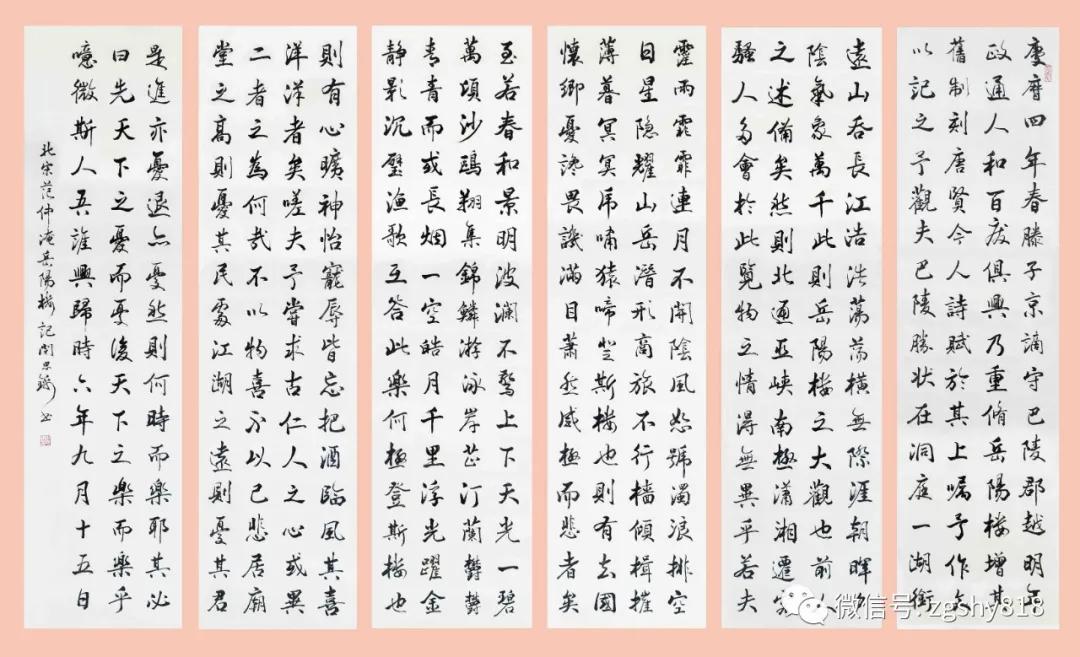 慶曆四年春滕子京謫守巴陵郡越明年
政通人和百废俱興乃重脩岳陽樓增其
舊制刻唐賢今人詩賦於其上囑予作文
以記之予觀夫巴陵勝狀在洞庭一湖銜
遠山吞長江浩浩蕩蕩橫無際涯朝暉夕
陰氣象萬千此則岳陽樓之大觀也前人
之述備矣然則北通巫峽南極瀟湘遷客
騷人多會於此覽物之情得無異乎若夫
霪雨霏霏連月不開陰風怒號濁浪排空
日星隐耀山岳潛形商旅不行檣傾楫摧
薄暮冥冥虎嘯猿啼登斯樓也則有去國
懷鄉憂讒畏譏滿目蕭然感極而悲者矣
至若春和景明波瀾不驚上下天光一碧
萬頃沙鷗翔集錦鱗游泳岸芷汀蘭鬱鬱
青青而或長烟一空皓月千里浮光躍金
静影沉璧漁歌互答此樂何極登斯樓也
則有心曠神怡寵辱皆忘把酒臨風其喜
洋洋者矣嗟夫予嘗求古仁人之心或異
二者之為何哉不以物喜不以己悲居廟
堂之高則憂其民處江湖之遠則憂其君
是進亦憂退亦憂然則何時而樂耶其必
曰先天下之憂而憂後天下之樂而樂乎
噫微斯人吾誰與歸時六年九月十五日
北宋范仲淹岳陽樓記
微信号: zgshy818